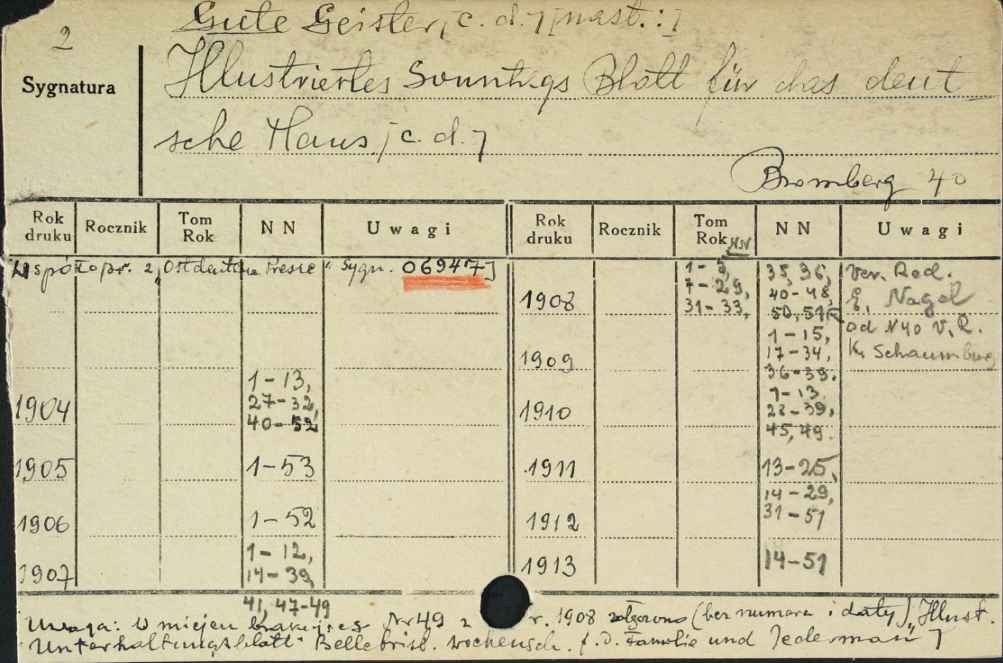 Gute Geister, [c. d.] [nast.:]
2
Sygnatura
Illustriertes Sonntags Blatt für das deut
sche Haus, [c. d.]
Bromberg 40
Rok druku Rocznik Tom Rok NN Uwagi Rok druku Rocznik Tom Rok NN NN Uwagi
Współopr. z „Ostdeutsche Presse" Sygn. 06947]
1908 1-5, 7-29, 31-33, 35, 36, 40-48, 50, 51 Ver. Red. E. Nagel
1909 1-15, 17-34, 36-39. od N40 V. R. K. Schaumburg
1904 1-13, 27-32, 40-52
1910 1-13. 22-39, 45, 49.
1905 1-53
1911 13-25,
1906 1-52
1912 14-29, 31-51
1907 1-12, 14-39, 41, 47-49
1913 14-51
Uwaga: W miejscu Nr 49 z r. 1908 (bez numeru i daty) „Illust.
Unterhaltungsblatt" Belletrist. Wochensch. f. d. Familie und Jederman]